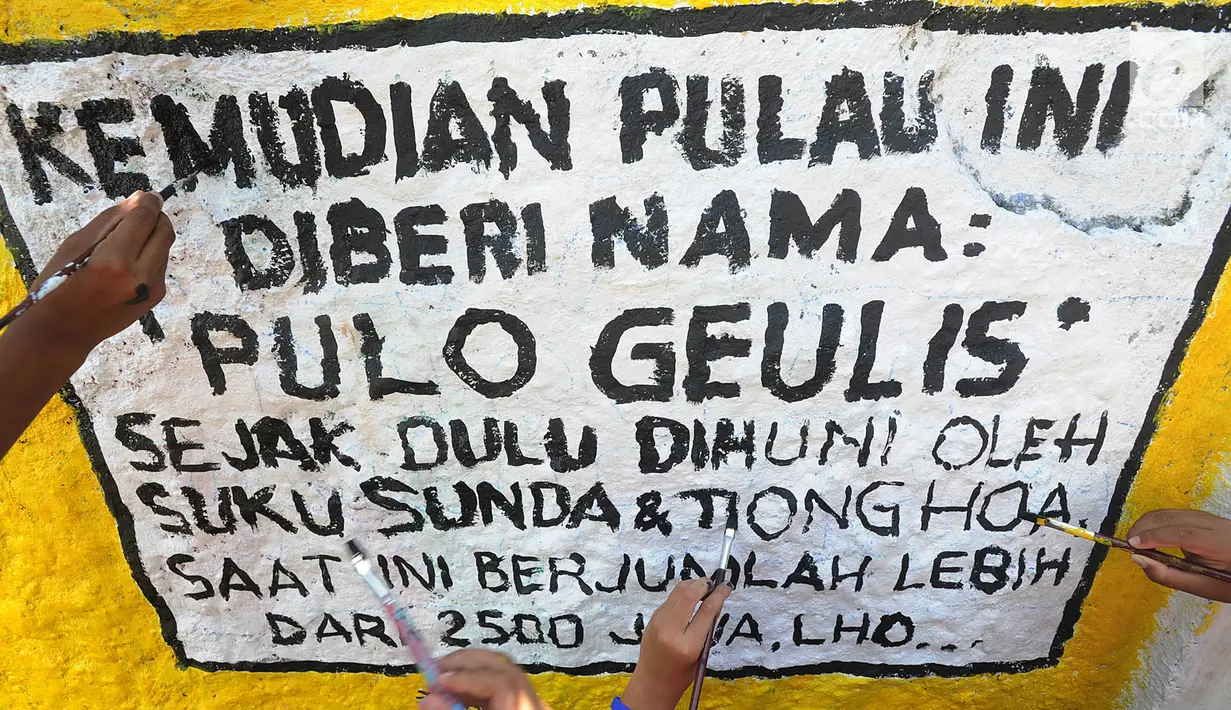 KEMUDIAN PULAU INI
DIBERI NAMA:
"PULO GEULIS"
SEJAK DULU DIHUNI OLEH
SUKU SUNDA & TIONGHOA.
SAAT INI BERJUMLAH LEBIH
DARI 2500 JIWA, LHO...
.COM